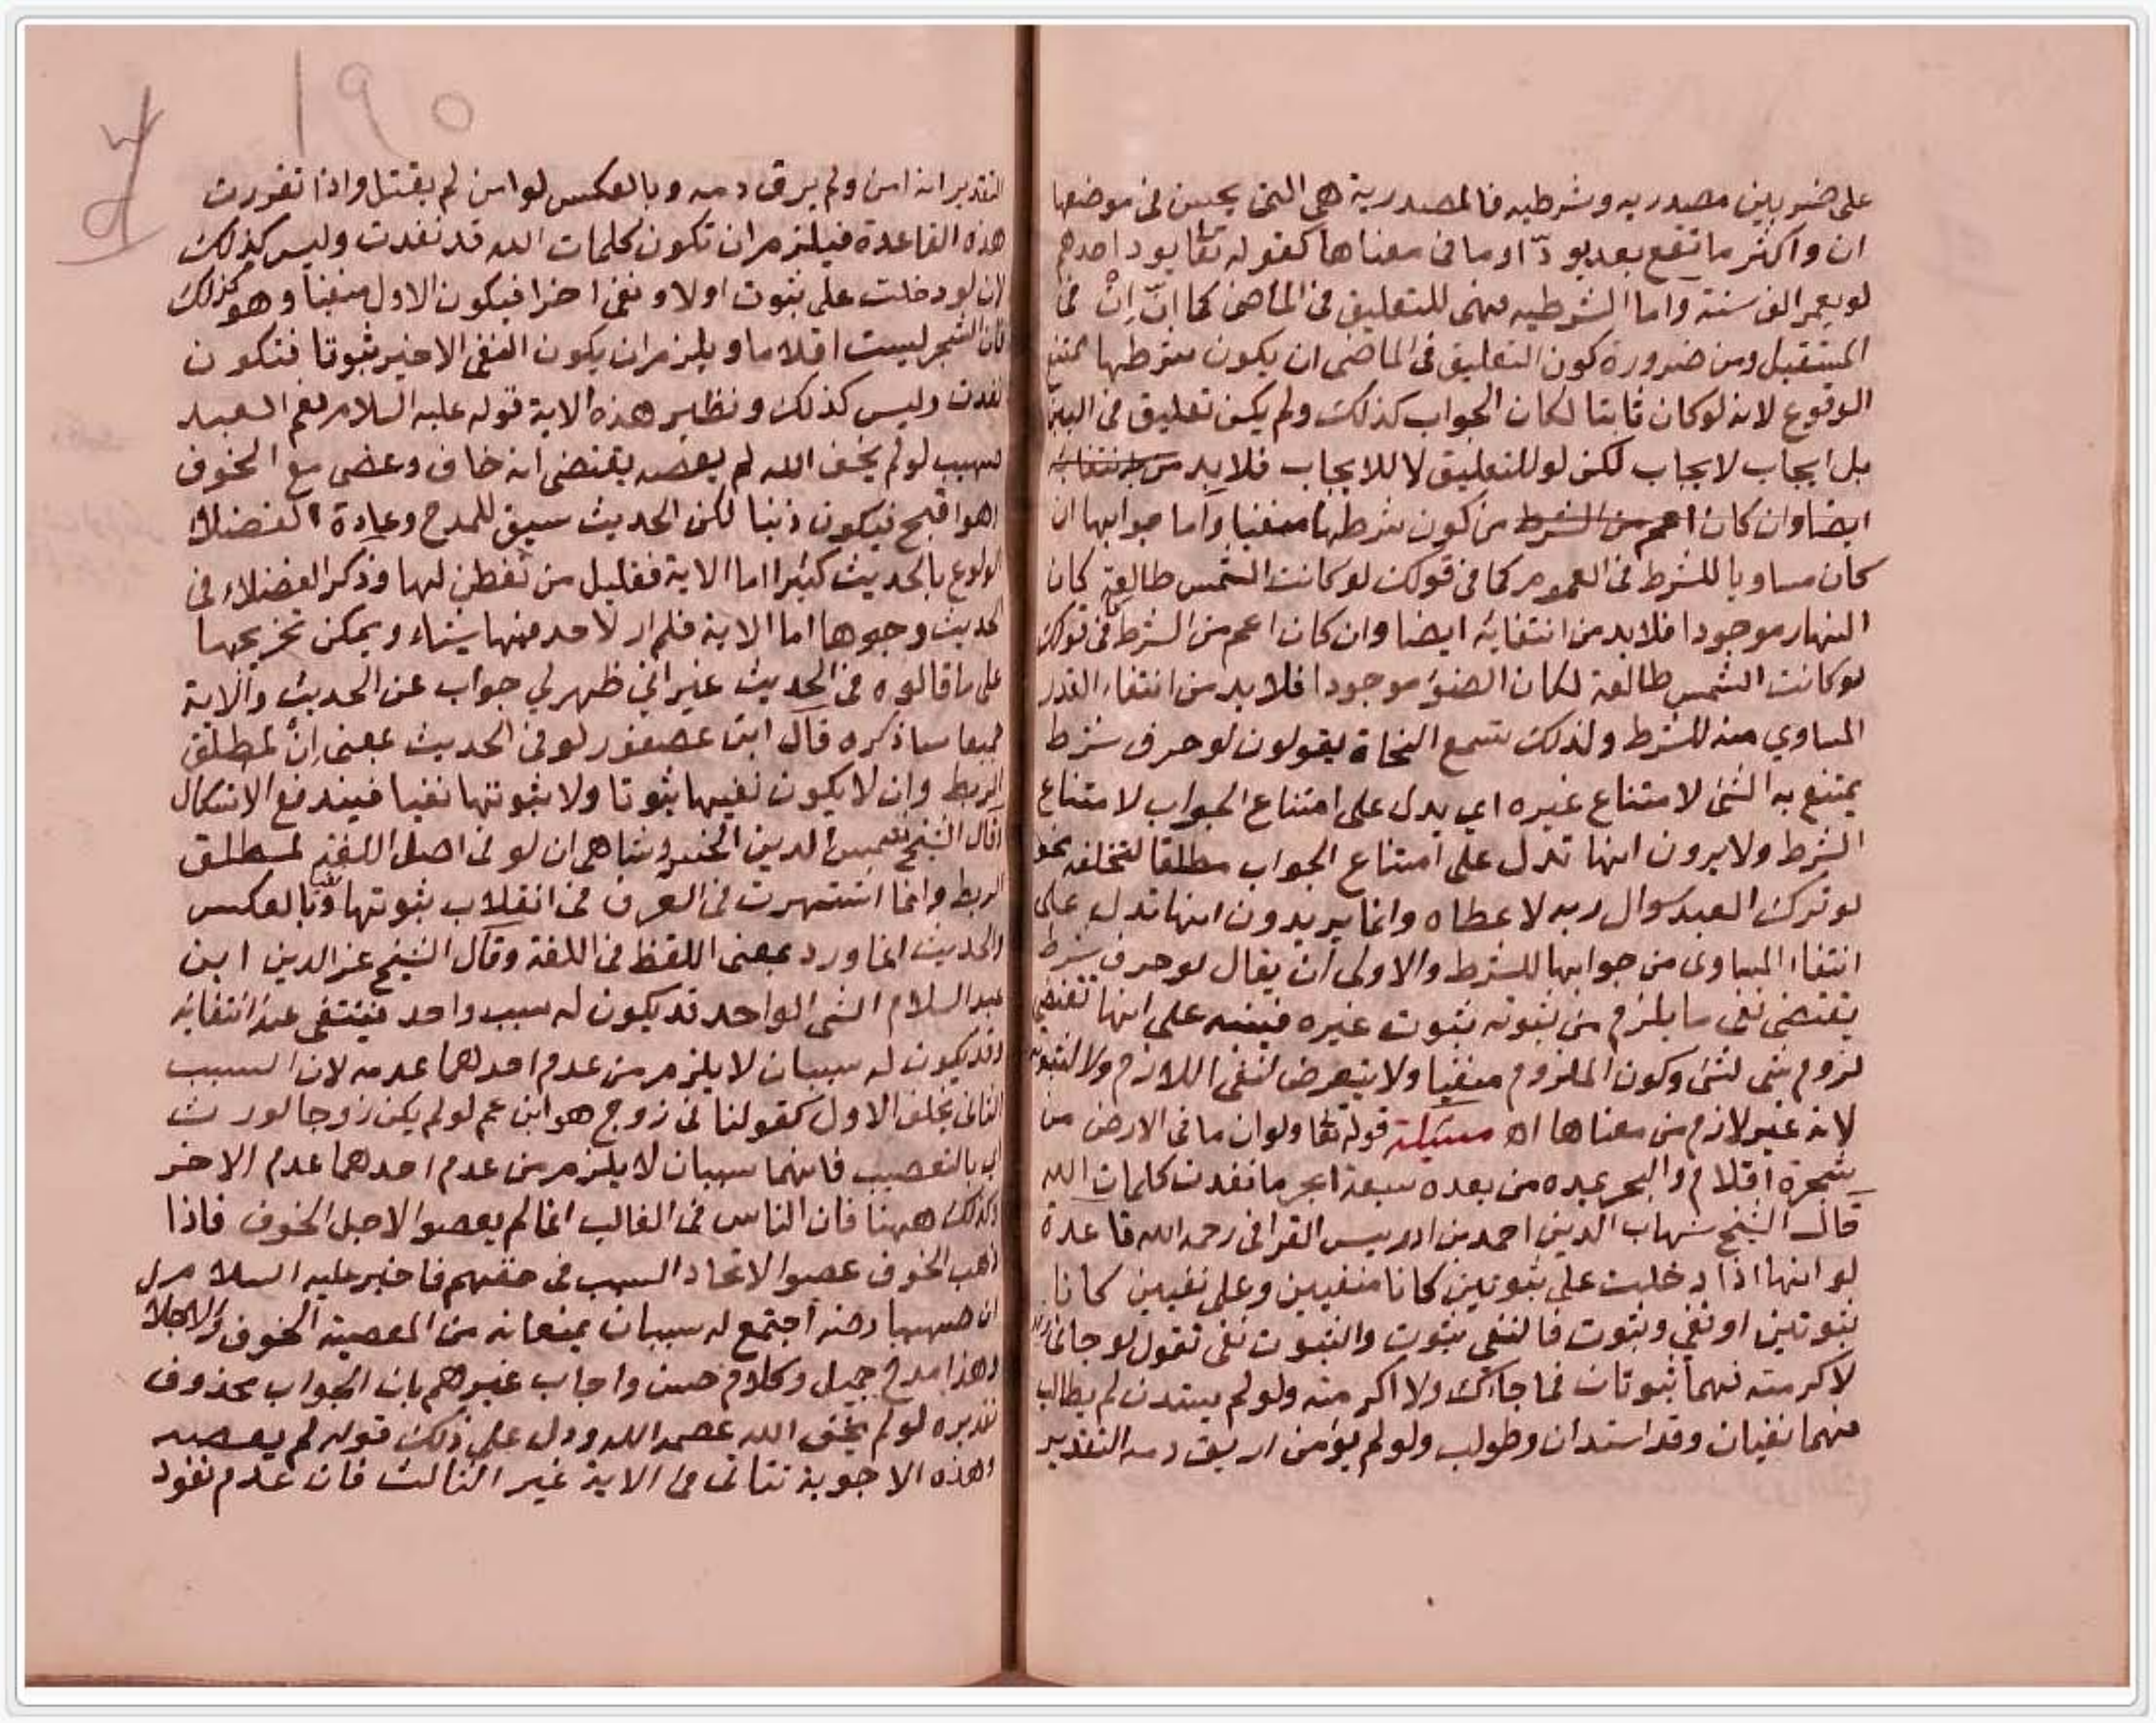 على ضربين مصدريه وشرطيه فالمصدرية هي التي يحسن في موضعها
ان واكثر ما تقع بعد يودّ او ما في معناها كقوله تعا يود احدهم
لو يعمر الف سنة واما الشرطيه فهي للتعليق في الماضي كما انّ اِنْ في
المستقبل ومن ضرورة كون التعليق في الماضي ان يكون شرطها منتفي
الوقوع لانه لو كان ثابتا لكان الجواب كذلك ولم يكن تعليق في البين
بل ايجاب لايجاب لكن لو للتعليق لا للايجاب فلا بد من
ايضا وان كان اعم من الشرط من كون شرطها منفيا واما جوابها ان
كان مساويا للشرط في العموم كما في قولك لو كانت الشمس طالعة كان
النهار موجودا فلا بد من انتفائه ايضا وان كان اعم من الشرط كما في قولك
لو كانت الشمس طالعة لكان الضوء موجودا فلا بد من انتفاء القدر
المساوي منه للشرط ولذلك تسمع النحاة يقولون لو حرف شرط
يمتنع به الشئ لامتناع غيره اي يدل على امتناع الجواب لامتناع
الشرط ولا يرون انها تدل على امتناع الجواب مطلقا لتخلفه نحو
لو ترك العبد سوال ربه لاعطاه وانما يريدون انها تدل على
انتفاء المساوى من جوابها للشرط والاولى ان يقال لو حرف شرط
يقتضى نفى ما يلزم من ثبوته ثبوت غيره فينبه على انها تقتضي
لزوم شى لشئ وكون الملزوم منفيا ولا يتعرض لنفى اللازم ولا لثبوته
لانه غير لازم من معناها اه مسئلة قوله تعا ولو ان ما في الارض من
شجرة اقلام والبحر يمده من بعده سبعة ابحر ما نفدت كلمات الله
قال الشيخ شهاب الدين احمد بن ادريس القرافى رحمه الله قاعدة
لو انها اذا دخلت على ثبوتين كانا منفيين وعلى نفيين كانا
ثبوتين او نفي وثبوت فالنفى ثبوت والثبوت نفى تقول لو جائى
لاكرمته فهما ثبوتان فما جاءك ولا اكرمته ولو لم يستدن لم يطالب
فهما نفيان وقد استدان وطولب ولو لم يؤمن اريق دمه التقدير
التقدير انه امن ولم يرق دمه وبالعكس لو امن لم يقتل واذا تقررت
هذه القاعدة فيلزم ان تكون كلمات الله قد نفدت وليس كذلك
لان لو دخلت على ثبوت اولا ونفى اخرا فيكون الاول منفيا وهو كذلك
فان الشجر ليست اقلاما ويلزم ان يكون النفى الاخير ثبوتا فتكون
نفدت وليس كذلك ونظير هذه الاية قوله عليه السلام نعم العبد
صهيب لو لم يخف الله لم يعصه يقتضى انه خاف وعصى مع الخوف
وهو اقبح فيكون ذنبا لكن الحديث سيق للمدح وعادة الفضلاء
الولوع بالحديث كثيرا اما الاية فقليل من تفطن لها وذكر الفضلاء في
الحديث وجوها اما الاية فلم ار لاحد فيها شياء ويمكن تخريجها
على ما قالوه في الحديث غير اني ظهر لي جواب عن الحديث والاية
جميعا ساذكره قال ابن عصفور لو في الحديث بمعنى اِنْ لمطلق
الربط وان لا يكون نفيها ثبوتا ولا ثبوتها نفيا فيندفع الاشكال
وقال الشيخ شمس الدين الخسروشاهى ان لو في اصل اللغة لمطلق
الربط وانما اشتهرت في العرف في انقلاب ثبوتها نفيا وبالعكس
والحديث انما ورد بمعنى اللفظ في اللغة وقال الشيخ عز الدين ابن
عبد السلام الشى الواحد قد يكون له سبب واحد فينتفى عند انتفائه
وقد يكون له سببان لا يلزم من عدم احدهما عدمه لان السبب
الثانى يخلف الاول كقولنا في زوج هو ابن عم لو لم يكن زوجا لورث
اى بالتعصيب فانهما سببان لا يلزم من عدم احدهما عدم الاخر
وكذلك ههنا فان الناس في الغالب انما لم يعصوا لاجل الخوف فاذا
ذهب الخوف عصوا لاتحاد السبب في حقهم فاخبر عليه السلام
ان صهيبا رضه اجتمع له سببان يمنعانه من المعصية الخوف والاجلال
وهذا مدح جميل وكلام حسن واجاب غيرهم بان الجواب محذوف
تقديره لو لم يخف الله عصمه الله ودل على ذلك قوله لم يعصه
وهذه الاجوبة تتاتى في الاية غير الثالث فان عدم نفود
١٩٥